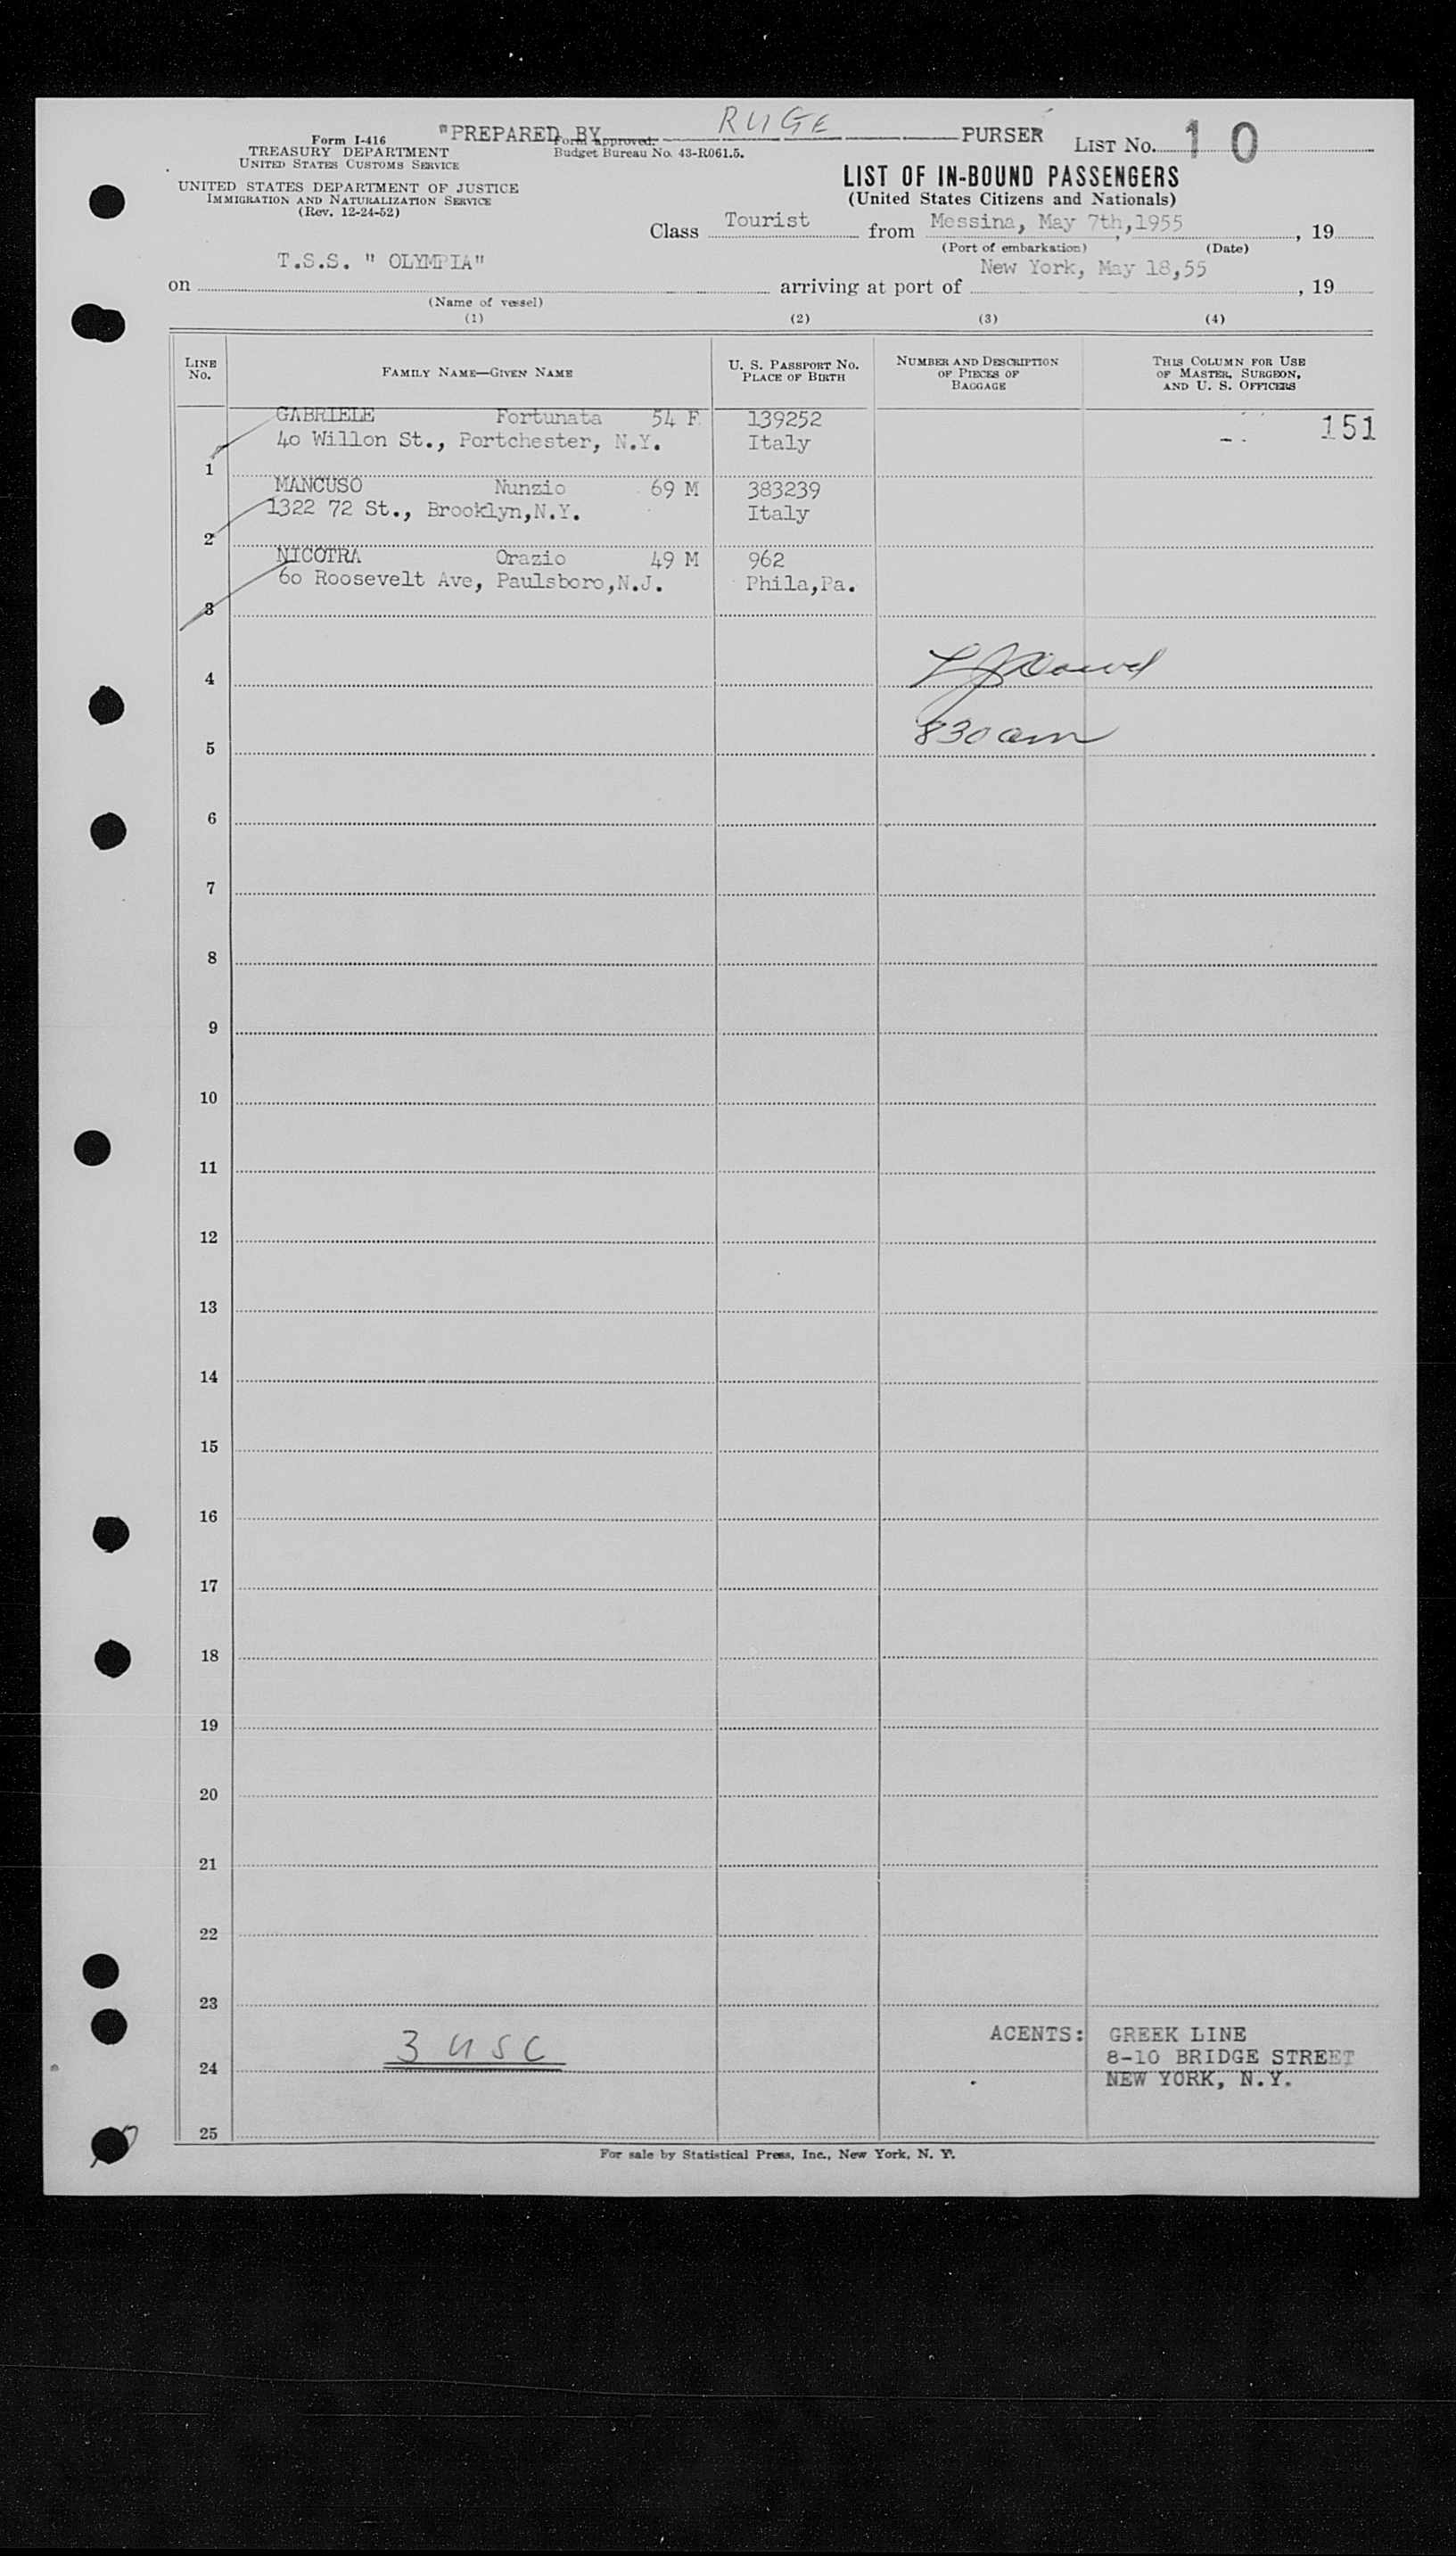 "PREPARED BY RUGE PURSER
Form I-416
Form approved.
TREASURY DEPARTMENT
Budget Bureau No. 43-R061.5.
UNITED STATES CUSTOMS SERVICE
LIST NO. 10
UNITED STATES DEPARTMENT OF JUSTICE
IMMIGRATION AND NATURALIZATION SERVICE
(Rev. 12-24-52)
LIST OF IN-BOUND PASSENGERS
(United States Citizens and Nationals)
Class Tourist from Messina, May 7th,1955, 19
(Port of embarkation) (Date)
on T.S.S. " OLYMPIA" arriving at port of New York, May 18,55, 19
(Name of vessel)
(1) (2) (3) (4)
LINE No. FAMILY NAME—GIVEN NAME U. S. PASSPORT NO. PLACE OF BIRTH NUMBER AND DESCRIPTION OF PIECES OF BAGGAGE THIS COLUMN FOR USE OF MASTER, SURGEON, AND U. S. OFFICERS
GABRIELE Fortunata 54 F 139252 151
40 Willon St., Portchester, N.Y. Italy
1
MANCUSO Nunzio 69 M 383239
1322 72 St., Brooklyn,N.Y. Italy
2
NICOTRA Orazio 49 M 962
60 Roosevelt Ave, Paulsboro,N.J. Phila,Pa.
3
4
5
830 am
6
7
8
9
10
11
12
13
14
15
16
17
18
19
20
21
22
23
3 USC
ACENTS: GREEK LINE
8-10 BRIDGE STREET
24
NEW YORK, N.Y.
25
For sale by Statistical Press, Inc., New York, N. Y.